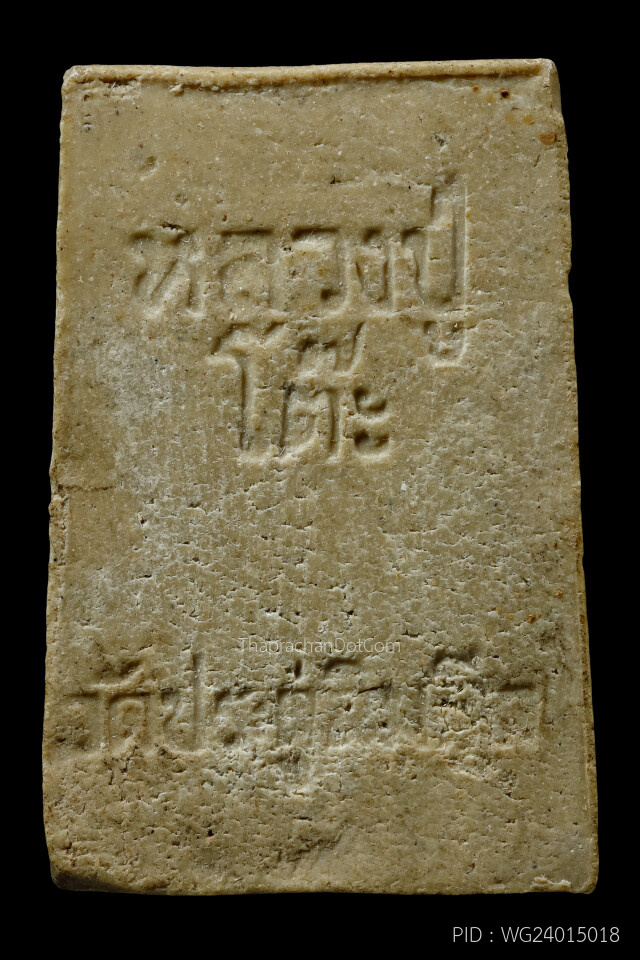 หลวงปู่
โต๊ะ
ThaprachanDotCom
วัดประดู่ฉิมพลี
PID : WG24015018